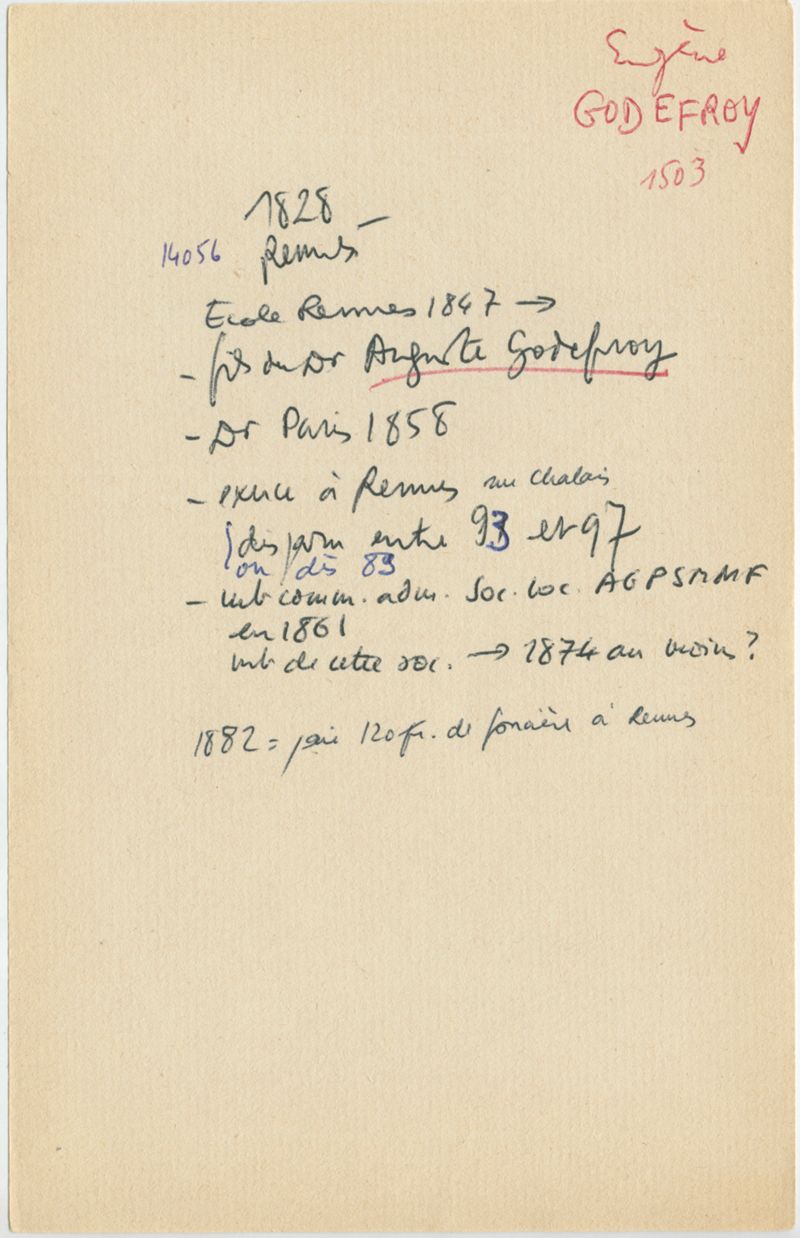 Eugène
GODEFROY
1503
1828 –
14056 Rennes
Ecole Rennes 1847 →
– fils du Dr Auguste Godefroy
– Dr Paris 1858
– exerce à Rennes rue Chalais
disparu entre 93 et 97
ou dès 89
– mb comm. adm. Soc. loc. AGPSMMF
en 1861
mb de cette soc. → 1874 au moins?
1882 = paie 120 fr. de foncière à Rennes